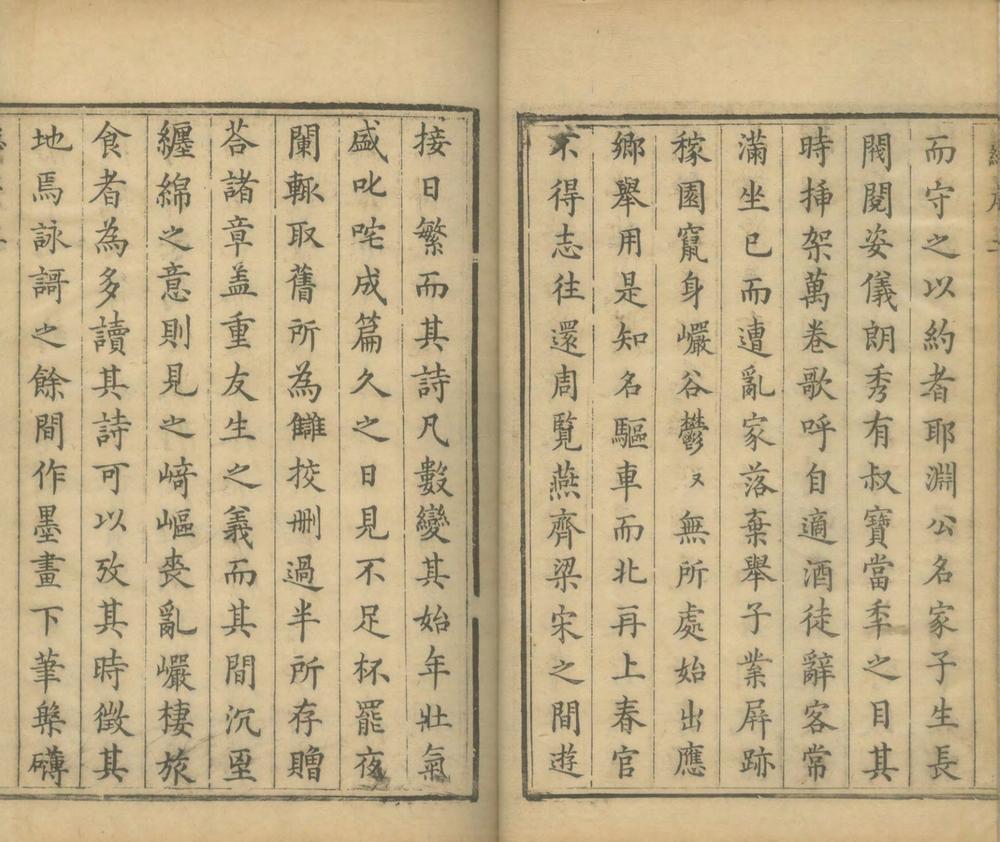 而守之以約者耶淵公名家子生長
閥閱姿儀朗秀有叔寶當年之目其
時插架萬卷歌呼自適酒徒辭客常
滿坐已而遭亂家落棄舉子業屏跡
稼園竄身巗谷鬱〻無所處始出應
鄉舉用是知名驅車而北再上春官
不得志往還周覽燕齊梁宋之間遊
接日繁而其詩凡數變其始年壯氣
盛叱咤成篇久之日見不足杯罷夜
闌輙取舊所為讎挍刪過半所存贈
荅諸章盖重友生之義而其間沉至
纒綿之意則見之崎嶇喪亂巗棲旅
食者為多讀其詩可以攷其時徵其
地焉詠謌之餘間作墨畫下筆槃礴